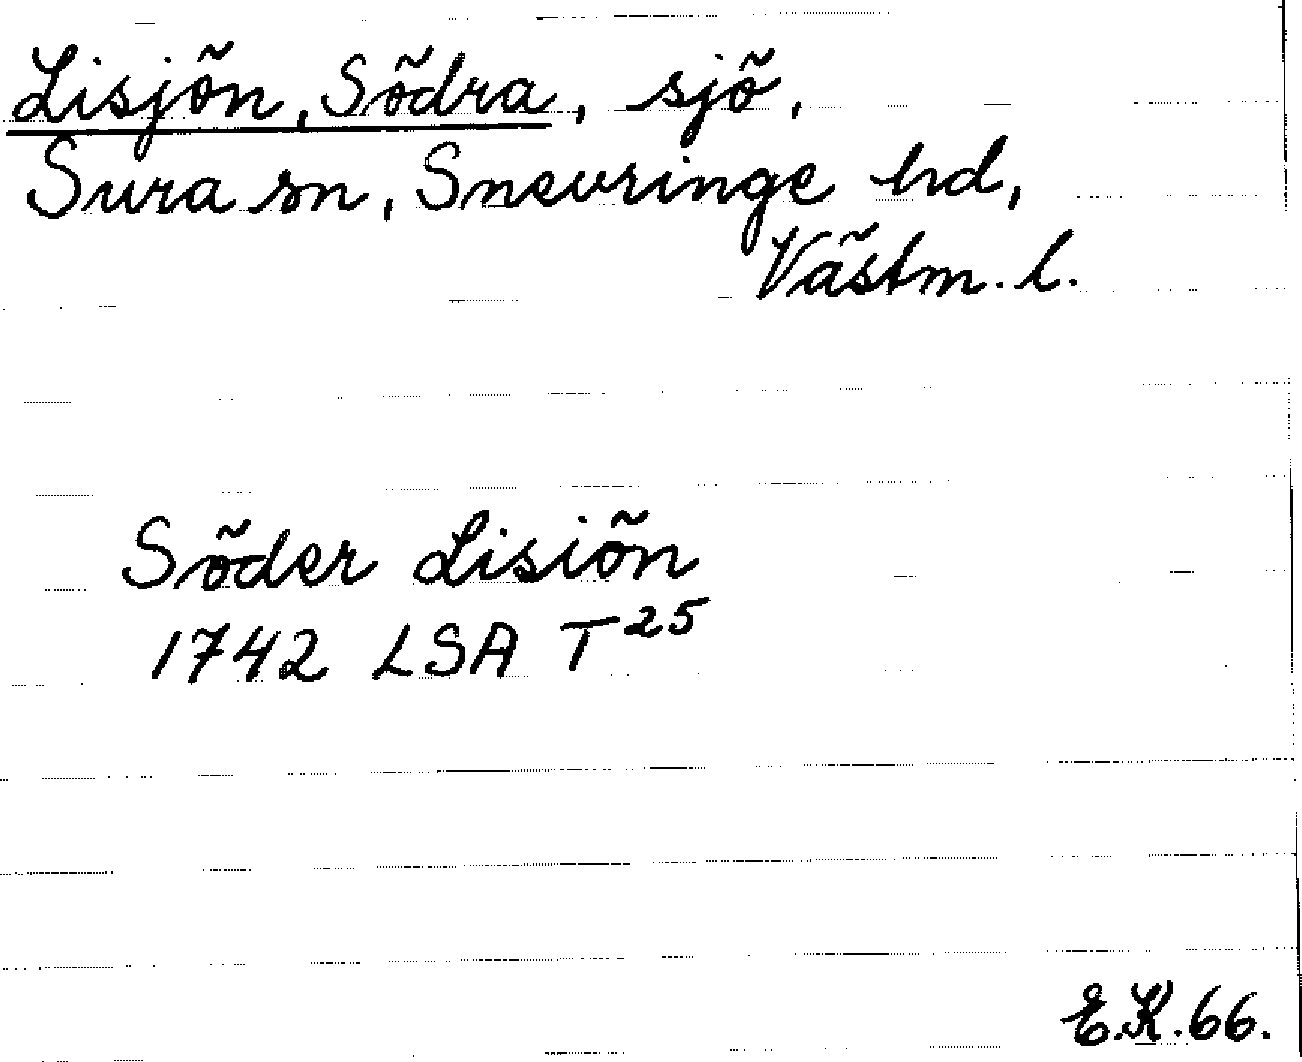 Lisjön, Södra, sjö,
Sura sn, Snevringe hd,
Västm. l.
Söder Lisiön
1742 LSA T25
E.K.66.